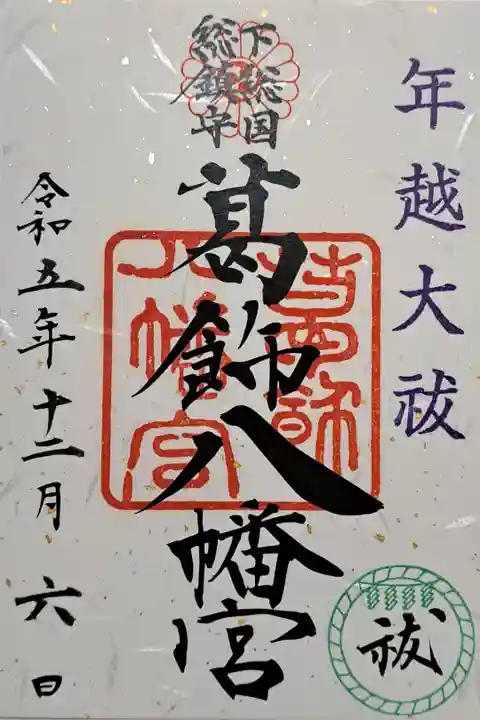 年越大祓
下総国
総鎮守
葛飾八幡宮
葛飾
八幡宮
祓
令和五年十二月六日